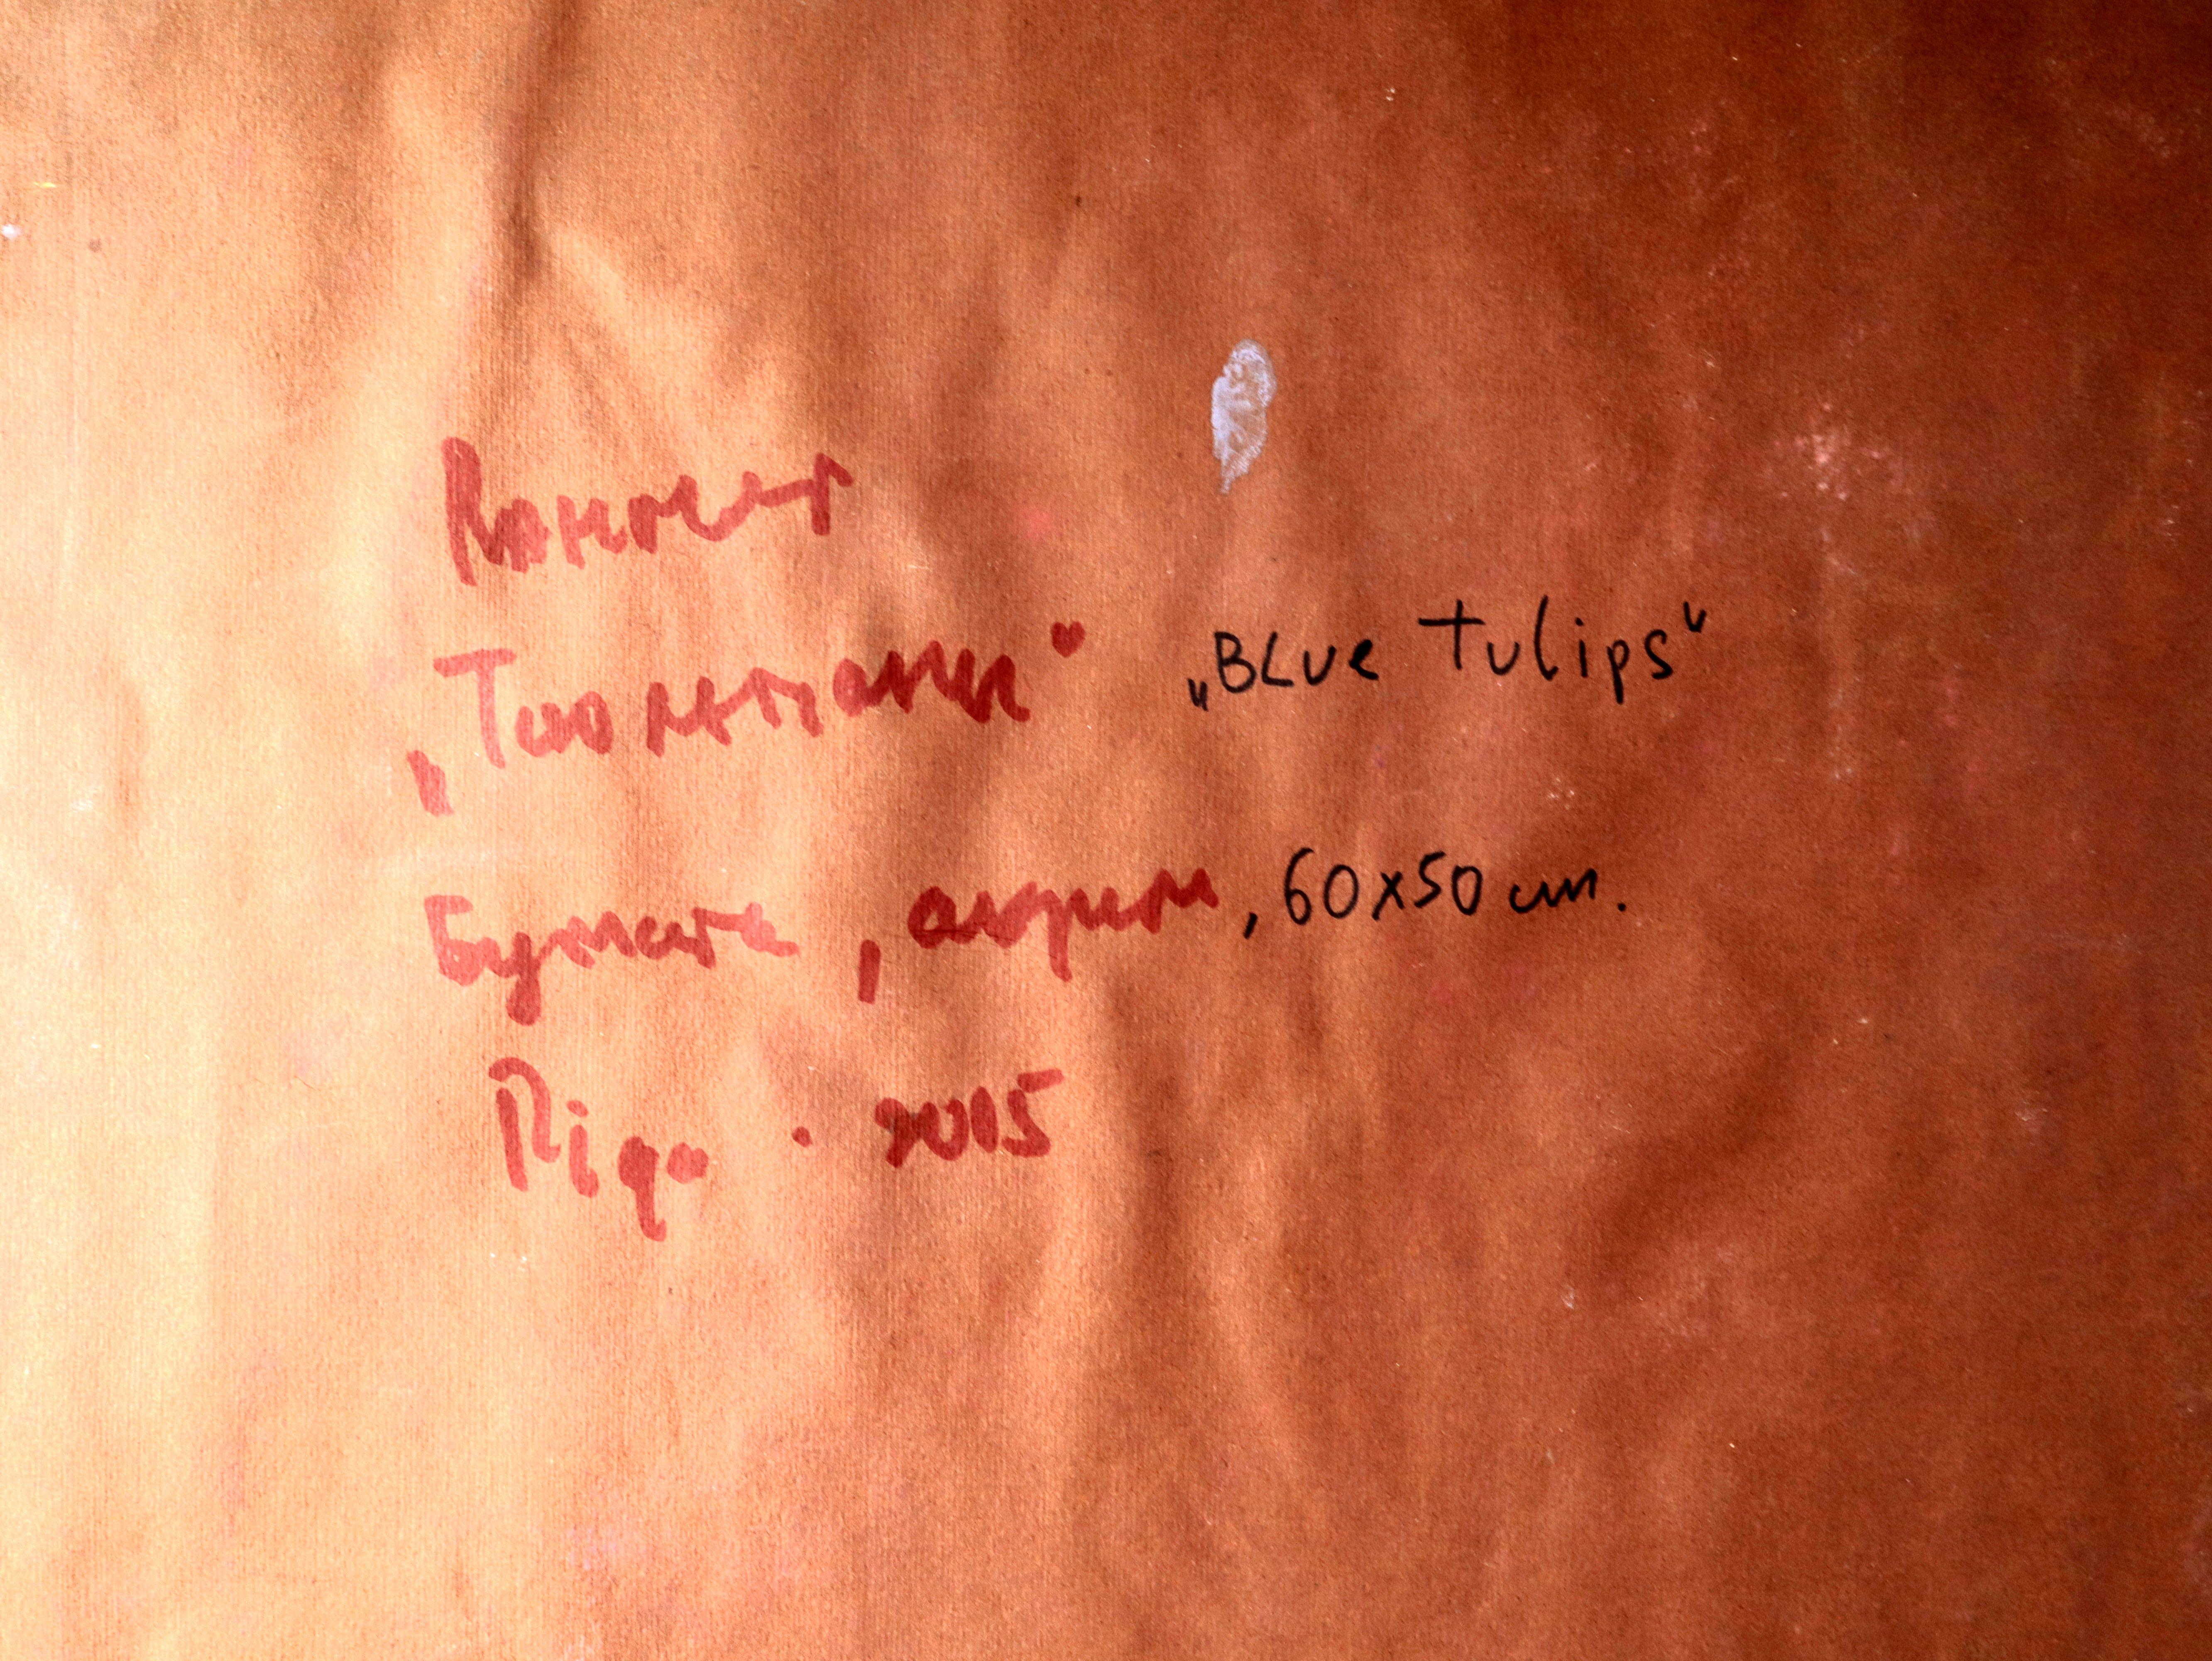 „Тюльпаны" „BLue tulips"
Бумага, акрил, 60x50 cm.
Riga . 2015